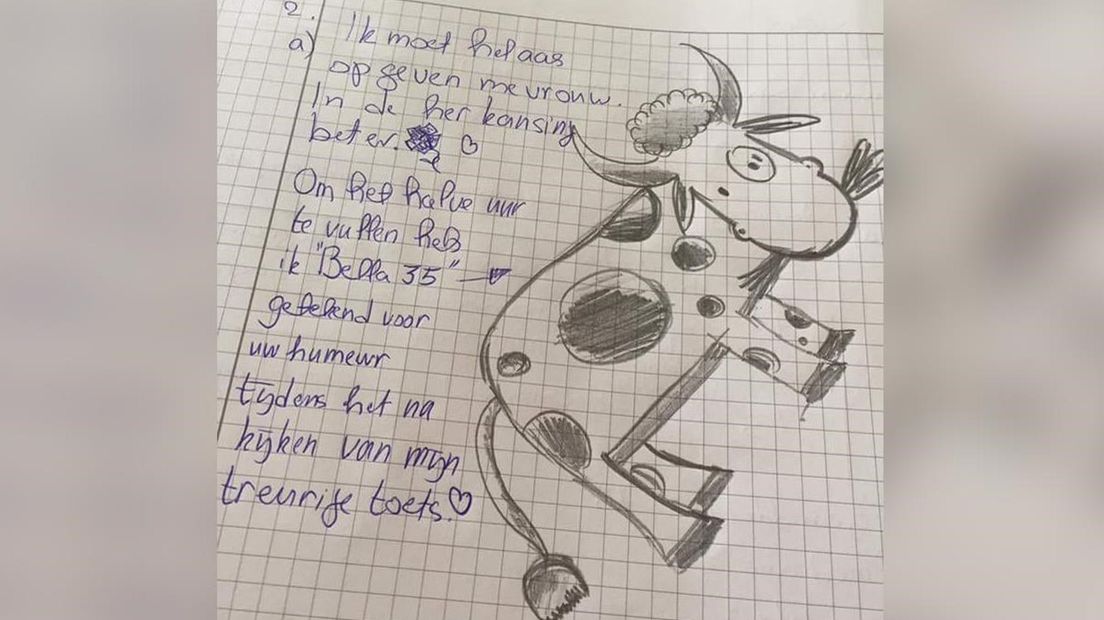 2.
a) Ik moet helaas
op geven mevrouw.
In de her kansing
beter. ♡
Om het halve uur
te vullen heb
ik "Bella 35" →
getekend voor
uw humeur
tijdens het na
kijken van mijn
treurige toets. ♡